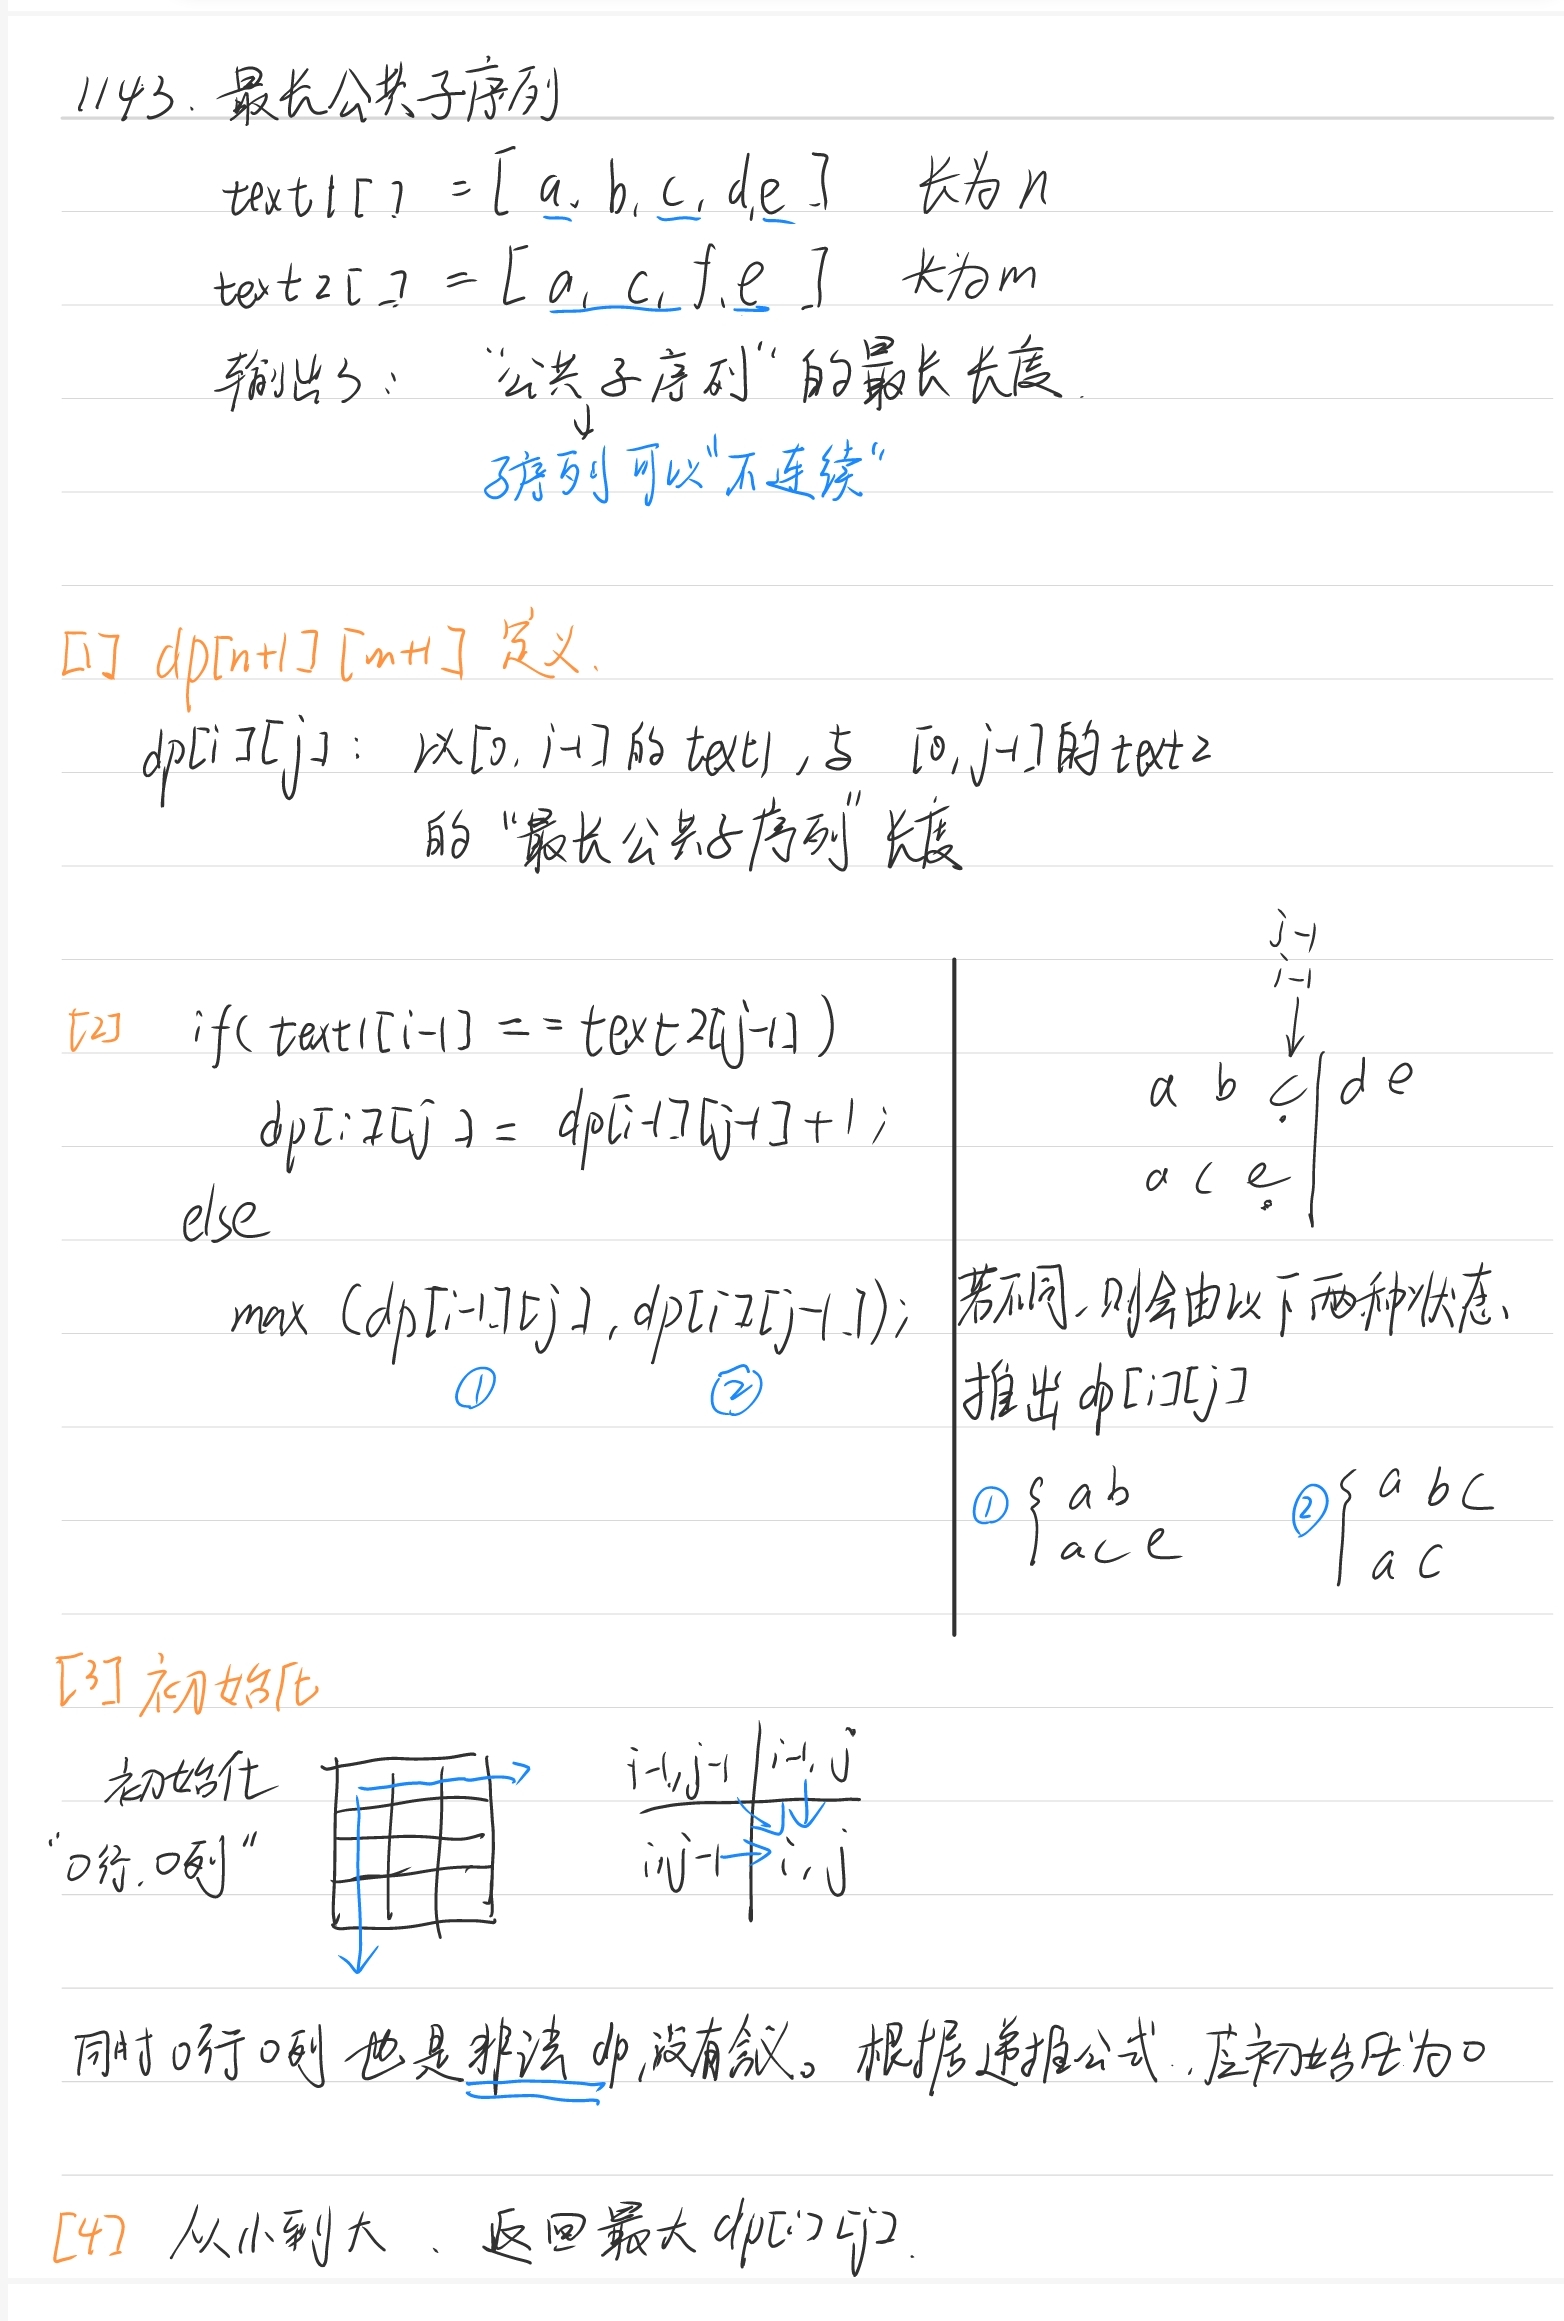 1143. 最长公共子序列
text1[] = [a, b, c, d, e] 长为n
text2[] = [a, c, f, e] 长为m
输出3: “公共子序列“的最长长度.
↓
子序列可以“不连续“
[1] dp[n+1][m+1] 定义.
dp[i][j]: 以[0, i-1]的text1, 与 [0, j-1]的text2
的 “最长公共子序列” 长度
[2] if(text1[i-1] == text2[j-1])
dp[i][j] = dp[i-1][j-1]+1;
else
max (dp[i-1][j], dp[i][j-1]);
① ②
j-1
i-1
a b c | d e
a c e
若不同、则会由以下两种状态、
推出dp[i][j]
① { ab
ace
② { a b c
a c
[3] 初始化
初始化
“0行.0列”
i-1,j-1 i-1,j
i,j-1 i,j
同时0行0列也是非法dp,没有含义。根据递推公式,应初始化为0
[4] 从小到大、返回最大dp[i][j].